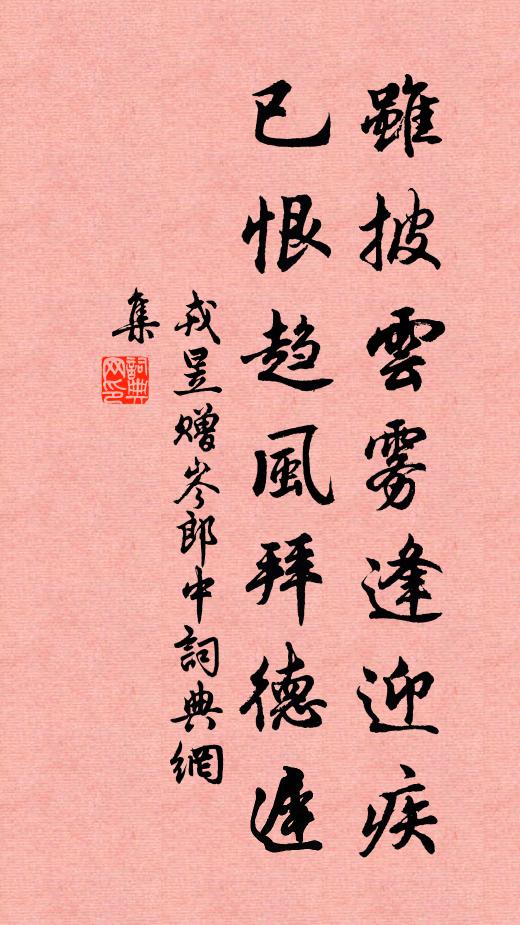 雖披雲霧逢迎疾
已恨趨風拜德遲
戎昱贈岑郎中詞典網
集
詞典網印